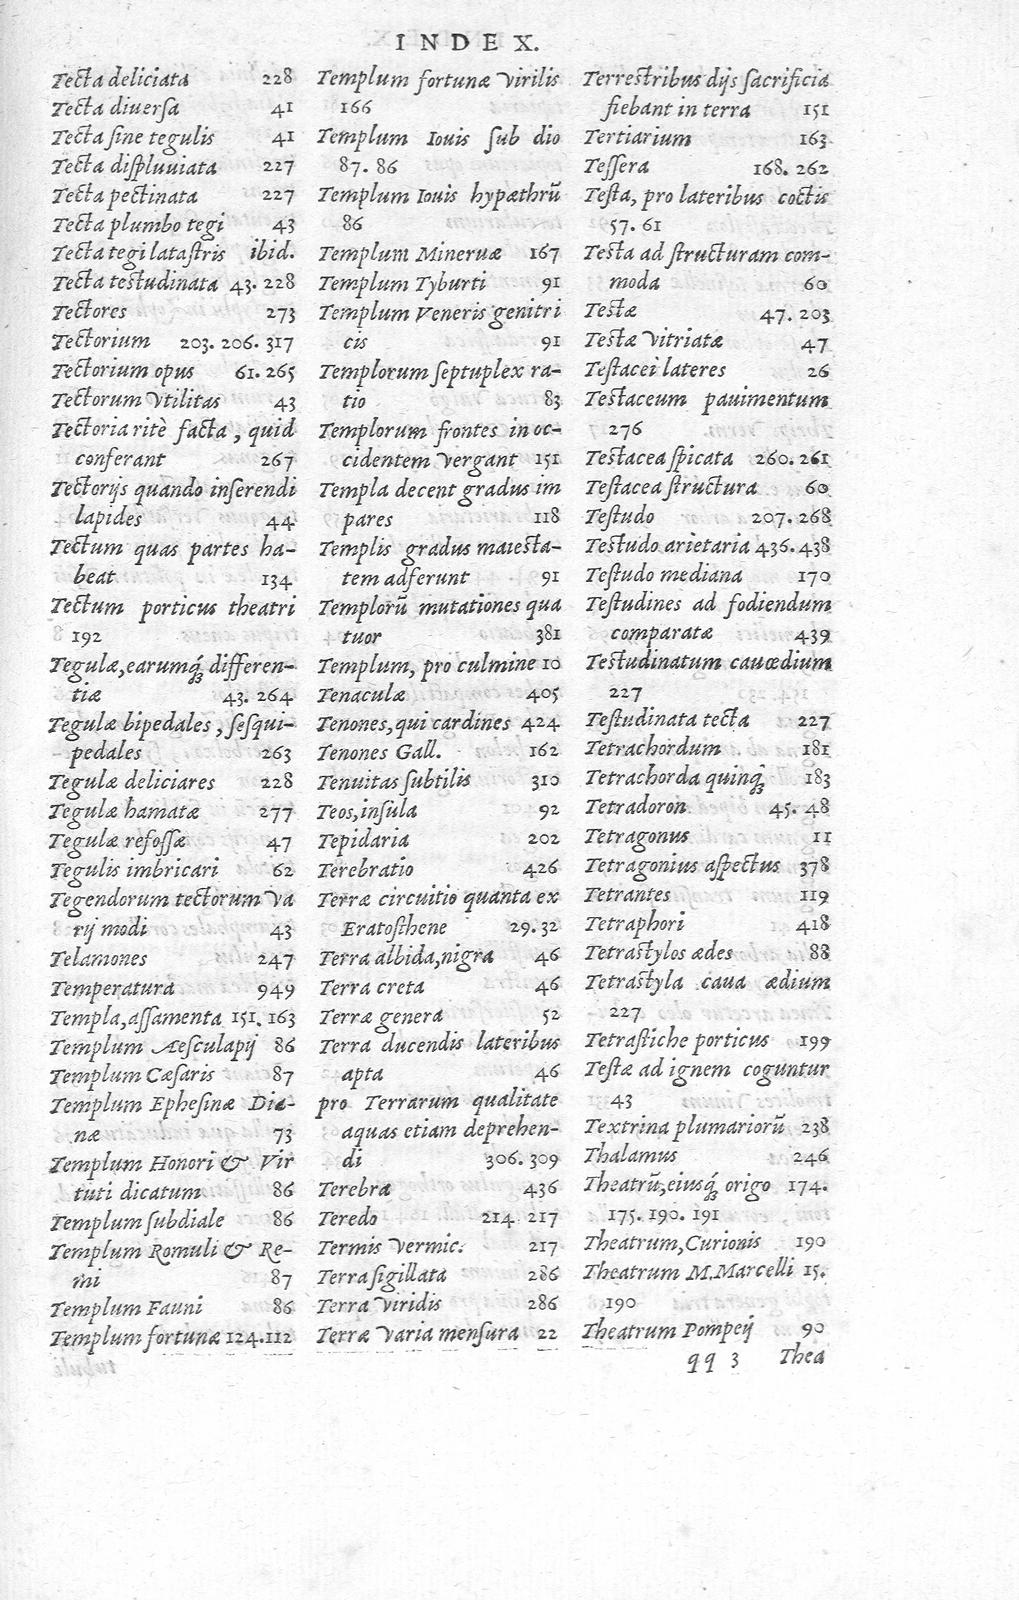 INDEX.
Tecta deliciata 228
Tecta diuersa 41
Tecta sine tegulis 41
Tecta displuuiata 227
Tecta pectinata 227
Tecta plumbo tegi 43
Tecta tegi latastris ibid.
Tecta testudinata 43. 228
Tectores 273
Tectorium 203. 206. 317
Tectorium opus 61. 265
Tectorum vtilitas 43
Tectoria ritè facta, quid
conferant 267
Tectorijs quando inserendi
lapides 44
Tectum quas partes ha-
beat 134
Tectum porticus theatri
192
Tegulæ, earumq́; differen-
tiæ 43. 264
Tegulæ bipedales, sesqui-
pedales 263
Tegulæ deliciares 228
Tegulæ hamatæ 277
Tegulæ refossæ 47
Tegulis imbricari 62
Tegendorum tectorum va
rij modi 43
Telamones 247
Temperatura 949
Templa, assamenta 151. 163
Templum Æesculapij 86
Templum Cæsaris 87
Templum Ephesinæ Dia-
næ 73
Templum Honori & Vir
tuti dicatum 86
Templum subdiale 86
Templum Romuli & Re-
mi 87
Templum Fauni 86
Templum fortunæ 124.112
Templum fortunæ virilis
166
Templum Iouis sub dio
87. 86
Templum Iouis hypæthrū
86
Templum Mineruæ 167
Templum Tyburti 91
Templum Veneris genitri
cis 91
Templorum septuplex ra-
tio 83
Templorum frontes in oc-
cidentem vergant 151
Templa decent gradus im
pares 118
Templis gradus maiesta-
tem adferunt 91
Templorū mutationes qua
tuor 381
Templum, pro culmine 10
Tenaculæ 405
Tenones, qui cardines 424
Tenones Gall. 162
Tenuitas subtilis 310
Teos, insula 92
Tepidaria 202
Terebratio 426
Terræ circuitio quanta ex
Eratosthene 29. 32
Terra albida, nigra 46
Terra creta 46
Terræ genera 52
Terra ducendis lateribus
apta 46
pro Terrarum qualitate
aquas etiam deprehen-
di 306. 309
Terebra 436
Teredo 214 217
Termis vermic. 217
Terra sigillata 286
Terra viridis 286
Terræ varia mensura 22
Terrestribus dijs sacrificia
fiebant in terra 151
Tertiarium 163
Tessera 168. 262
Testa, pro lateribus coctis
57. 61
Testa ad structuram com-
moda 60
Testæ 47. 203
Testæ vitriatæ 47
Testacei lateres 26
Testaceum pauimentum
276
Testacea spicata 260. 261
Testacea structura 60
Testudo 207. 268
Testudo arietaria 436. 438
Testudo mediana 170
Testudines ad fodiendum
comparatæ 439
Testudinatum cauœdium
227
Testudinata tecta 227
Tetrachordum 181
Tetrachorda quinq́; 183
Tetradoron 45. 48
Tetragonus 11
Tetragonius aspectus 378
Tetrantes 119
Tetraphori 418
Tetrastylos ædes 88
Tetrastyla caua ædium
227
Tetrastiche porticus 199
Testæ ad ignem coguntur
43
Textrina plumariorū 238
Thalamus 246
Theatrū, eiusq́; origo 174.
175. 190. 191
Theatrum, Curionis 190
Theatrum M. Marcelli 15.
190
Theatrum Pompeij 90
qq 3 Thea